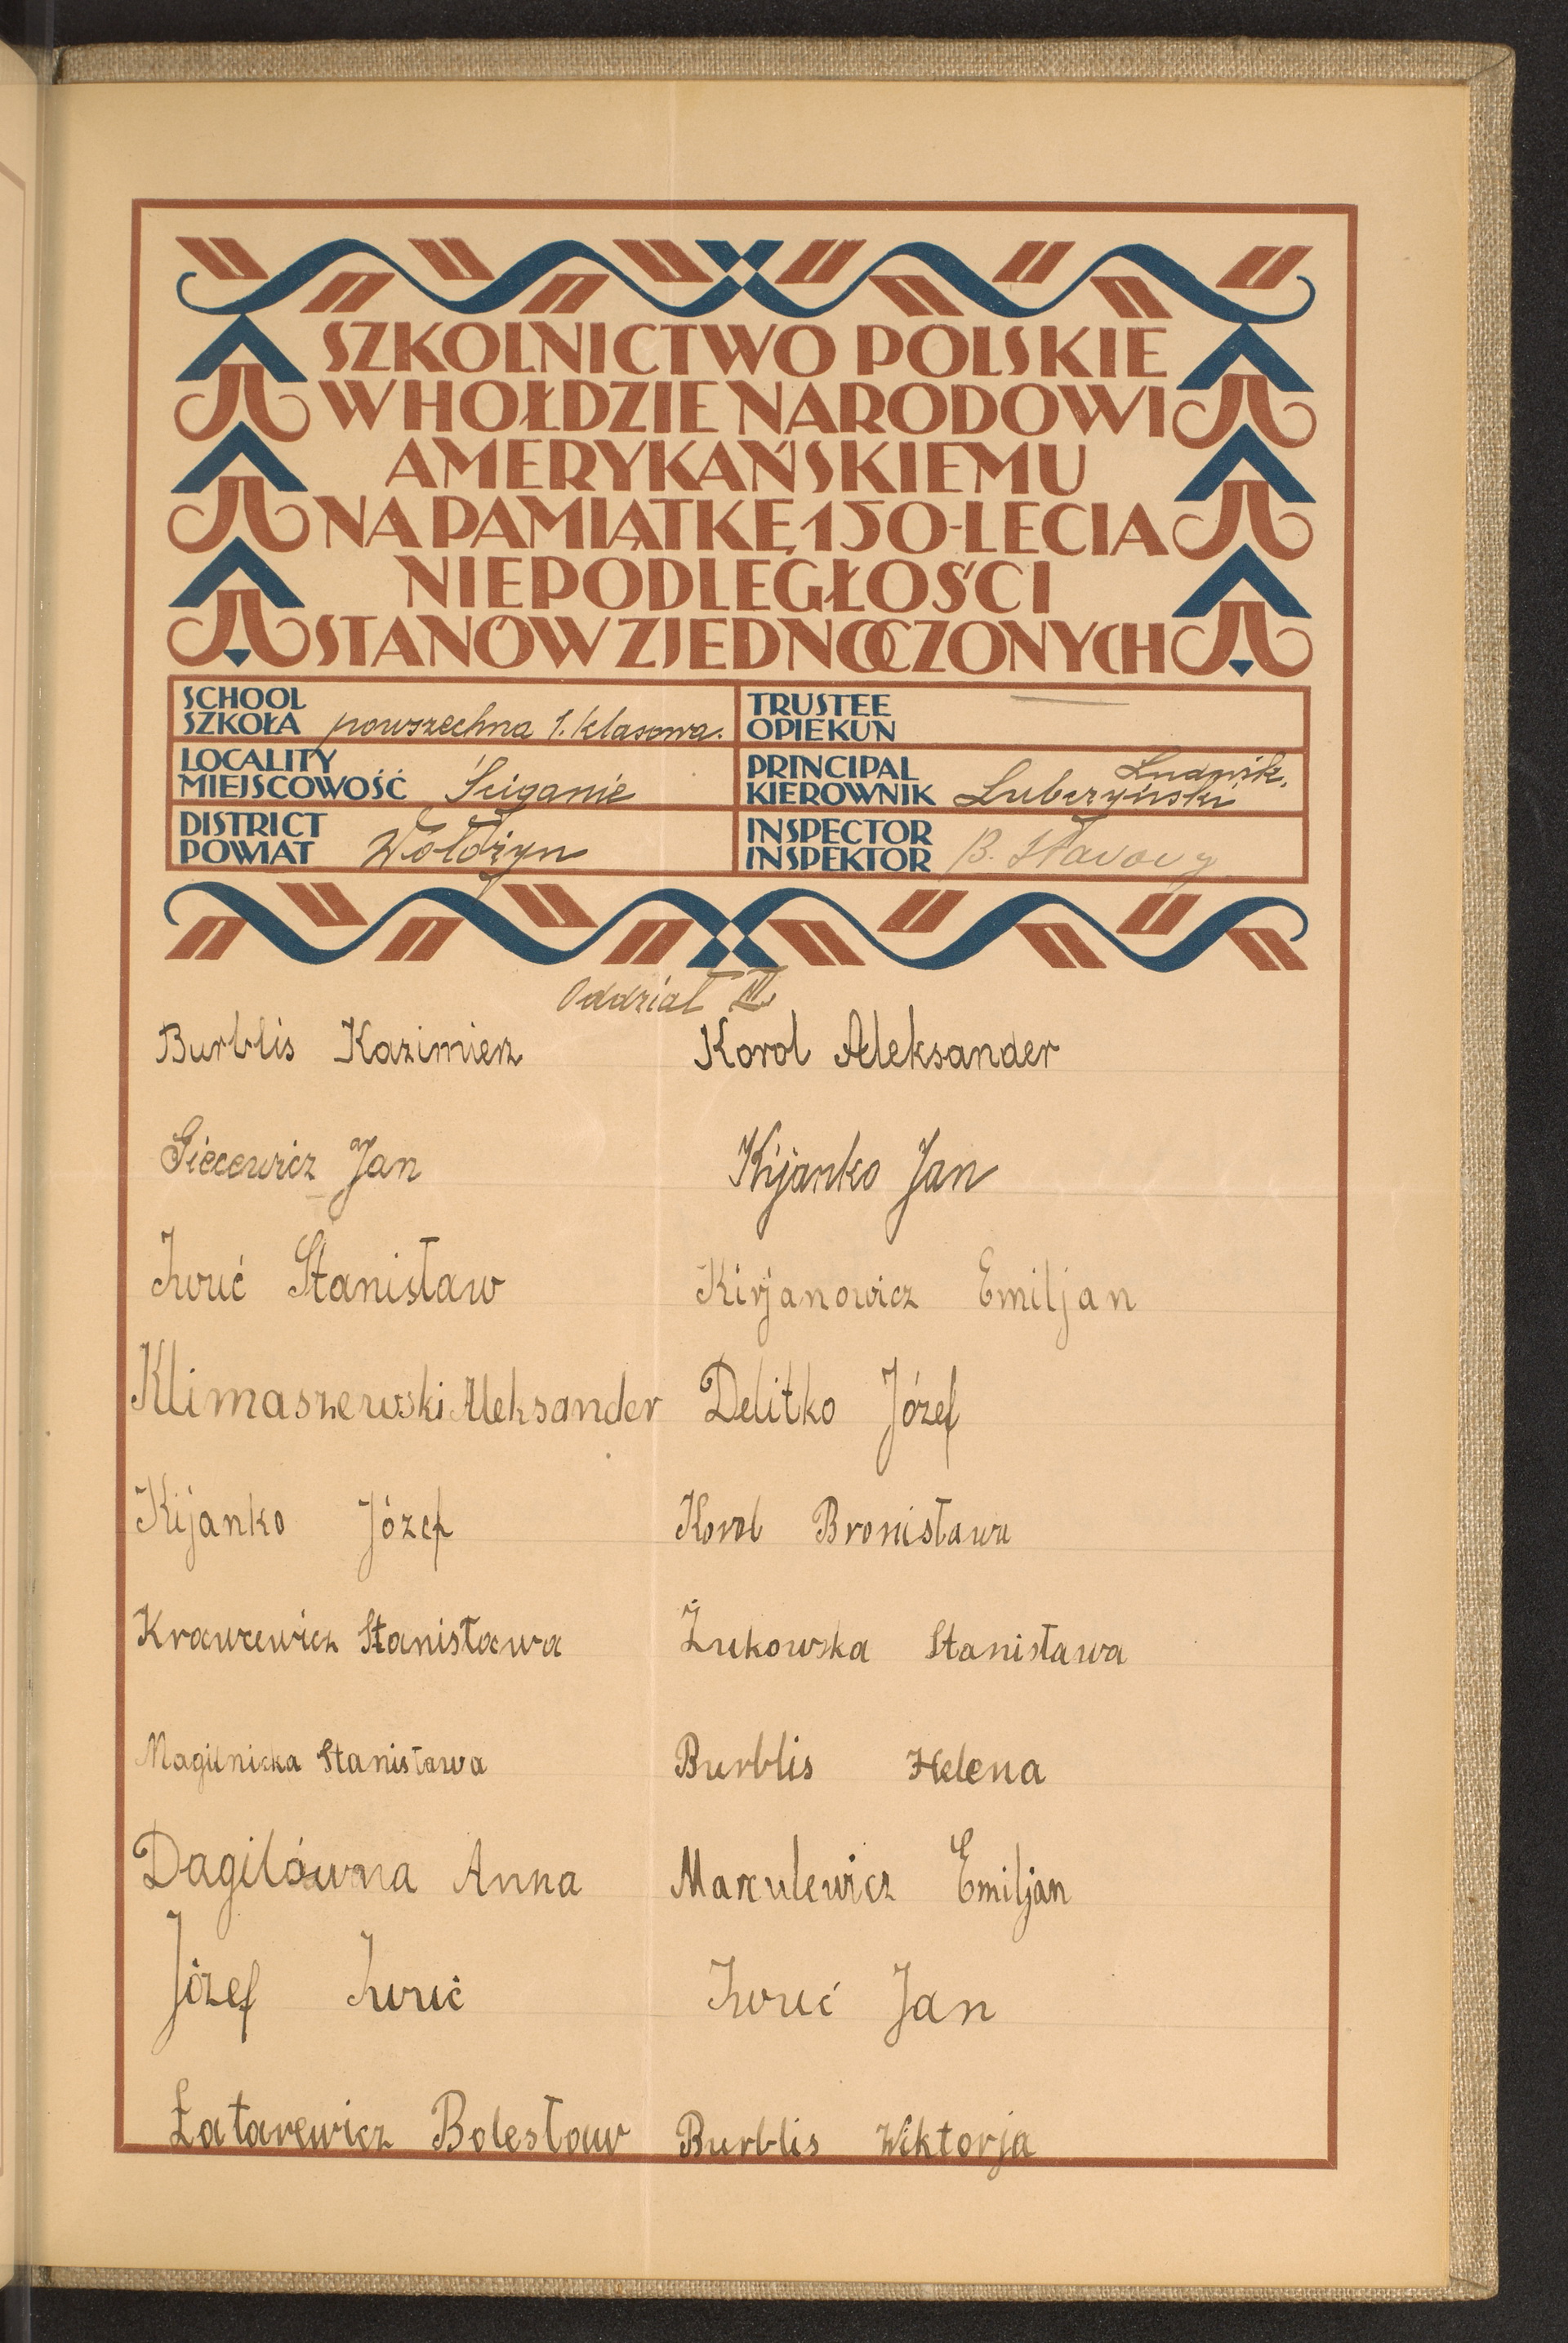 SZKOLNICTWO POLSKIE
W HOŁDZIE NARODOWI
AMERYKAŃSKIEMU
NA PAMIĄTKĘ 150-LECIA
NIEPODLEGŁOŚCI
STANÓW ZJEDNOCZONYCH
SCHOOL
SZKOŁA powszechna 1. klasowa.
LOCALITY
MIEJSCOWOŚĆ Ściganie
DISTRICT
POWIAT Wołożyn
TRUSTEE
OPIEKUN
PRINCIPAL Ludwik.
KIEROWNIK Lubczyński
INSPECTOR
INSPEKTOR B.
Oddział III
Burblis Kazimierz Korol Aleksander
Siecewicz Jan Kijanko Jan
Iwuć Stanisław Kirjanowicz Emiljan
Klimaszewski Aleksander Delitko Józef
Kijanko Józef Korol Bronisława
Krawcewicz Stanisława Żukowska Stanisława
Magilnicka Stanisława Burblis Helena
Dagilówna Anna Marculewicz Emiljan
Józef Iwuć Iwuć Jan
Łatarewicz Bolesław Burblis Wiktorja